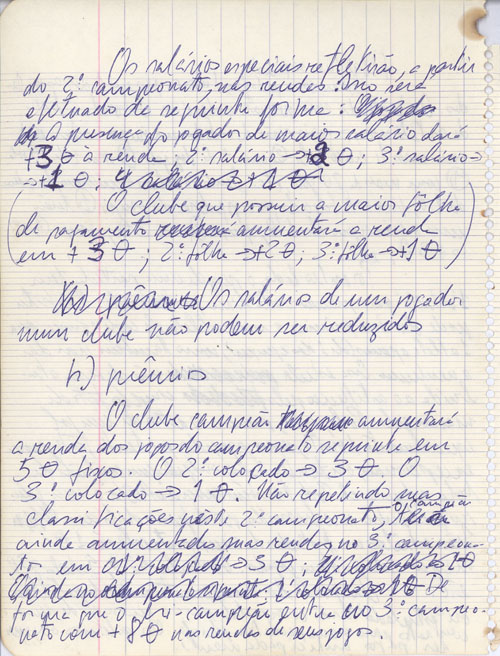 Os salários especiais refletirão, a partir
do 2º campeonato, nas rendas. Isso será
efetuado da seguinte forma:
a presença do jogador de maior salário dará
+3 θ à renda; 2º salário → +2 θ; 3º salário →
→ +1 θ;
(O clube que possuir a maior fôlha
de pagamento aumentará a renda
em +3 θ; 2ª fôlha → +2 θ; 3ª fôlha → +1 θ)
Os salários de um jogador
num clube não podem ser reduzidos
h) prêmios
O clube campeão aumentará
a renda dos jogos do campeonato seguinte em
5 θ fixos. O 2º colocado → 3 θ. O
3º colocado → 1 θ. Não repetindo suas
classificações neste 2º campeonato, o campeão
ainda aumentadas suas rendas no 3º campeona-
to em 3 θ;
De
forma que o bi-campeão entra no 3º campeo-
nato com +8 θ nas rendas de seus jogos.